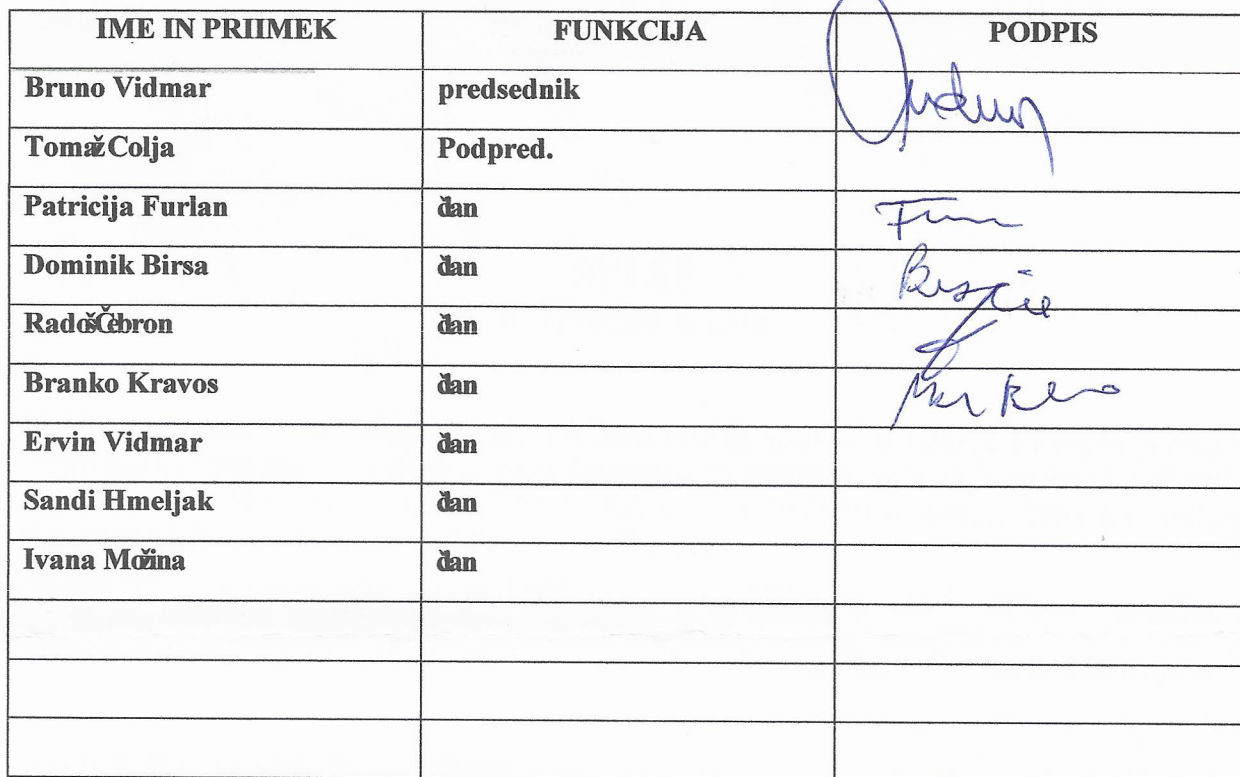 IME IN PRIIMEK FUNKCIJA PODPIS
Bruno Vidmar predsednik
Tomaž Colja Podpred.
Patricija Furlan član
Dominik Birsa član
Radoš Čebron član
Branko Kravos član
Ervin Vidmar član
Sandi Hmeljak član
Ivana Možina član